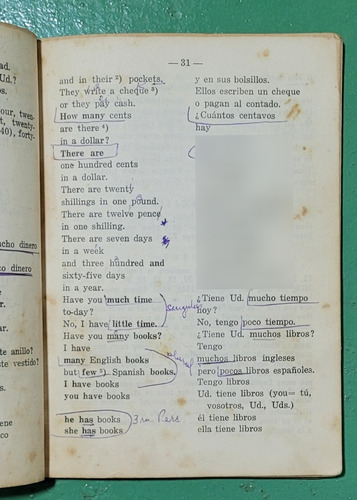 — 31 —
and in their ²) pockets.
They write a cheque ³)
or they pay cash.
How many cents
are there ⁴)
in a dollar?
There are
one hundred cents
in a dollar.
There are twenty
shillings in one pound.
There are twelve pence
in one shilling.
There are seven days
in a week
and three hundred and
sixty-five days
in a year.
Have you much time
to-day?
No, I have little time.
Have you many books?
I have
many English books
but few ⁵) Spanish books.
I have books
you have books
he has books
she has books
singular
plural
3ra Pers
y en sus bolsillos.
Ellos escriben un cheque
o pagan al contado.
¿Cuántos centavos
hay
¿Tiene Ud. mucho tiempo
hoy?
No, tengo poco tiempo.
¿Tiene Ud. muchos libros?
Tengo
muchos libros ingleses
pero pocos libros españoles.
Tengo libros
Ud. tiene libros (you= tú,
vosotros, Ud., Uds.)
él tiene libros
ella tiene libros
ad.
Ud.?
os.
our, twen-
t, twenty.
40), forty-
cho dinero
o dinero
e.
r.
ar.
te anillo?
te vestido?
s.
ene
co